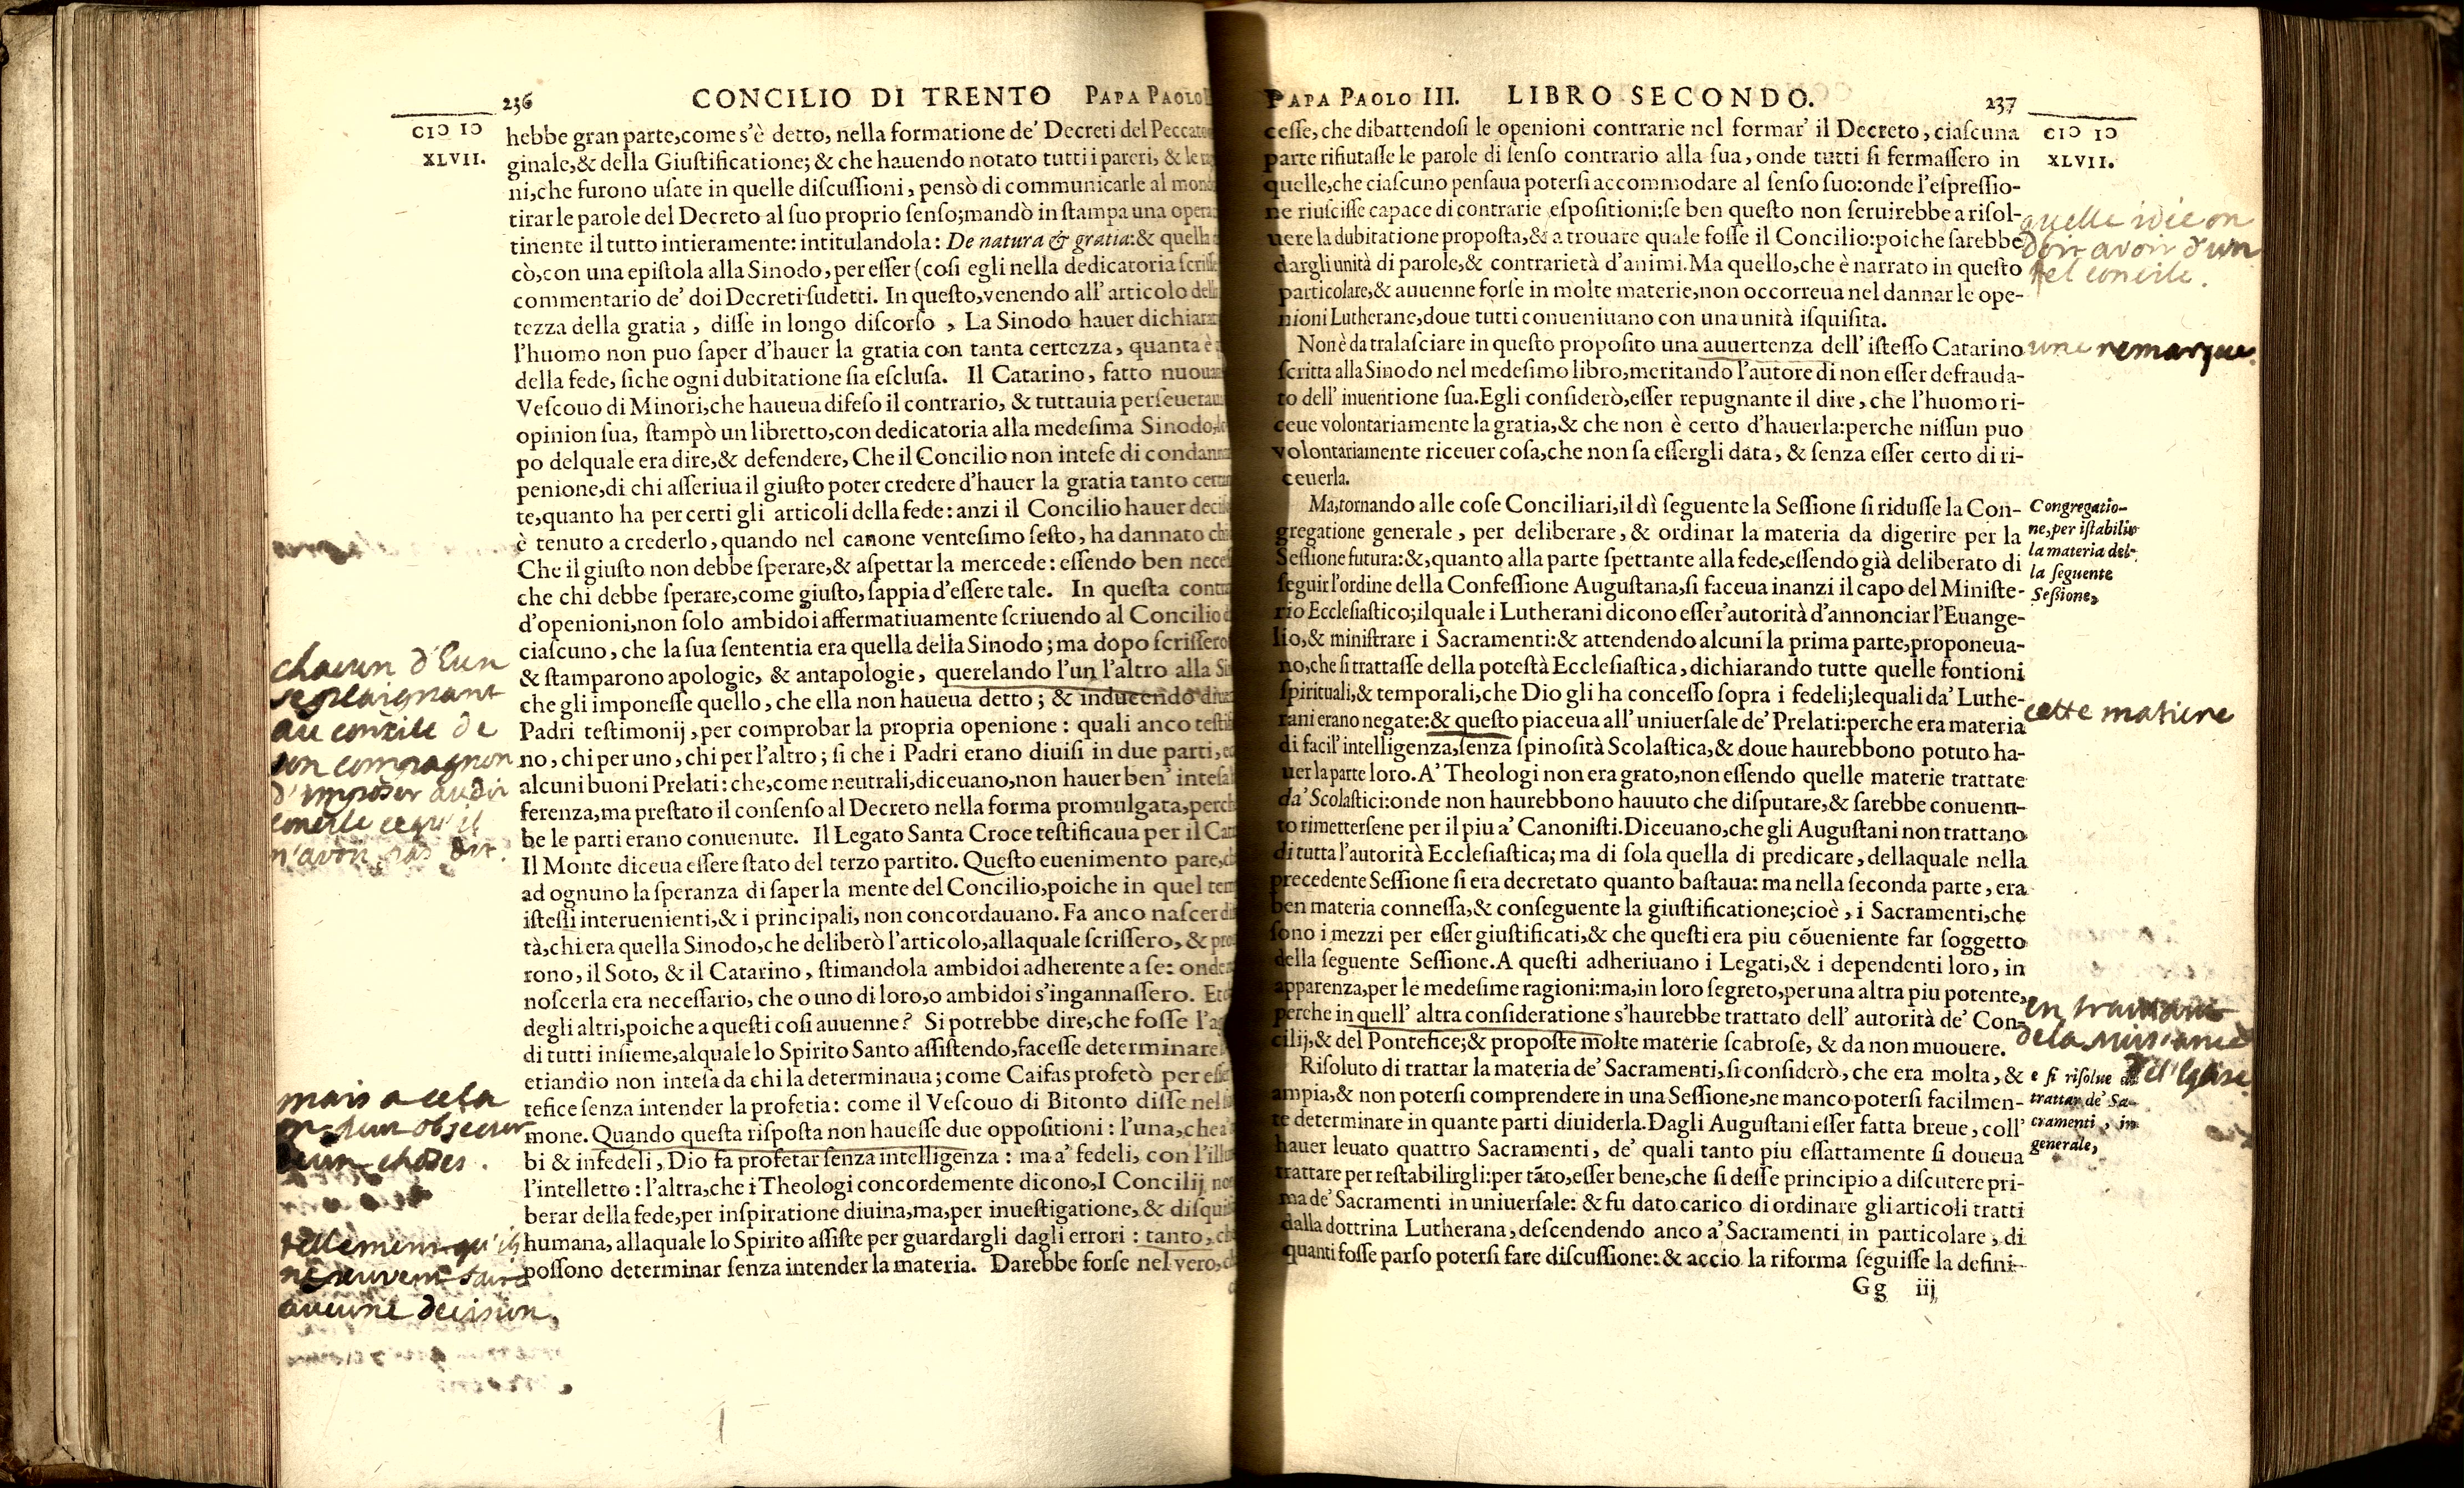 236 CONCILIO DI TRENTO PAPA PAOLO
CIↃ IↃ
XLVII.
hebbe gran parte,come s'è detto, nella formatione de' Decreti del Peccato
ginale,& della Giustificatione; & che hauendo notato tutti i pareri, & le
ni,che furono usate in quelle discussioni, pensò di communicarle al
tirar le parole del Decreto al suo proprio senso;mandò in stampa una
tinente il tutto intieramente: intitulandola: De natura & gratia:& quella
cò,con una epistola alla Sinodo, per esser (cosi egli nella dedicatoria
commentario de' doi Decreti sudetti. In questo,venendo all' articolo
tezza della gratia, disse in longo discorso, La Sinodo hauer
l'huomo non puo saper d'hauer la gratia con tanta certezza, quanta è
della fede, siche ogni dubitatione sia esclusa. Il Catarino, fatto
Vescouo di Minori,che haueua difeso il contrario, & tuttauia
opinion sua, stampò un libretto,con dedicatoria alla medesima Sinodo,
po delquale era dire,& defendere, Che il Concilio non intese di
penione,di chi asseriua il giusto poter credere d'hauer la gratia tanto
te,quanto ha per certi gli articoli della fede: anzi il Concilio hauer
è tenuto a crederlo, quando nel canone ventesimo sesto, ha dannato
Che il giusto non debbe sperare,& aspettar la mercede: essendo ben
che chi debbe sperare,come giusto, sappia d'essere tale. In questa
d'openioni,non solo ambidoi affermatiuamente scriuendo al Concilio
ciascuno, che la sua sententia era quella della Sinodo; ma dopo scrissero
& stamparono apologie, & antapologie, querelando l'un l'altro alla
che gli imponesse quello, che ella non haueua detto; & inducendo
Padri testimonij, per comprobar la propria openione: quali anco
no, chi per uno, chi per l'altro; si che i Padri erano diuisi in due parti,
alcuni buoni Prelati: che,come neutrali,diceuano,non hauer ben'
ferenza,ma prestato il consenso al Decreto nella forma promulgata,
be le parti erano conuenute. Il Legato Santa Croce testificaua per il
Il Monte diceua essere stato del terzo partito. Questo euenimento pare,
ad ognuno la speranza di saper la mente del Concilio,poiche in quel
istessi interuenienti,& i principali, non concordauano. Fa anco nascer
tà,chi era quella Sinodo,che deliberò l'articolo,allaquale scrissero, &
rono, il Soto, & il Catarino, stimandola ambidoi adherente a se:
noscerla era necessario, che o uno di loro,o ambidoi s'ingannassero.
degli altri,poiche a questi cosi auuenne? Si potrebbe dire,che fosse
di tutti insieme,alquale lo Spirito Santo assistendo,facesse
etiandio non intesa da chi la determinaua; come Caifas profetò per
tefice senza intender la profetia: come il Vescouo di Bitonto disse
mone. Quando questa risposta non hauesse due oppositioni: l'una,
bi & infedeli, Dio fa profetar senza intelligenza: ma a' fedeli, con
l'intelletto: l'altra,che i Theologi concordemente dicono,I Concilij
berar della fede,per inspiratione diuina,ma,per inuestigatione, &
humana, allaquale lo Spirito assiste per guardargli dagli errori: tanto,
possono determinar senza intender la materia. Darebbe forse nel vero,
chacun d'Eux
se plaignant
au concile de
son compagnon
d'imposer audit
concile ce qu'il
n'avoit pas dit.
mais a cela
on peut objecter
deux choses.
tellement qu'ils
ne peuvent faire
aucune decision,
PAPA PAOLO III. LIBRO SECONDO. 237
CIↃ IↃ
XLVII.
cesse, che dibattendosi le openioni contrarie nel formar' il Decreto, ciascuna
parte rifiutasse le parole di senso contrario alla sua, onde tutti si fermassero in
quelle,che ciascuno pensaua potersi accommodare al senso suo:onde l'espressio-
ne riuscisse capace di contrarie espositioni:se ben questo non seruirebbe a risol-
uere la dubitatione proposta,& a trouare quale fosse il Concilio:poiche sarebbe
dargli unità di parole,& contrarietà d'animi.Ma quello,che è narrato in questo
particolare,& auuenne forse in molte materie,non occorreua nel dannar le ope-
nioni Lutherane,doue tutti conueniuano con una unità isquisita.
Non è da tralasciare in questo proposito una auuertenza dell' istesso Catarino
scritta alla Sinodo nel medesimo libro,meritando l'autore di non esser defrauda-
to dell' inuentione sua.Egli considerò,esser repugnante il dire, che l'huomo ri-
ceue volontariamente la gratia,& che non è certo d'hauerla:perche nissun puo
volontariamente riceuer cosa,che non sa essergli data, & senza esser certo di ri-
ceuerla.
Ma,tornando alle cose Conciliari,il dì seguente la Sessione si ridusse la Con-
gregatione generale, per deliberare, & ordinar la materia da digerire per la
Sessione futura:&,quanto alla parte spettante alla fede,essendo già deliberato di
seguir l'ordine della Confessione Augustana,si faceua inanzi il capo del Ministe-
rio Ecclesiastico;ilquale i Lutherani dicono esser'autorità d'annonciar l'Euange-
lio,& ministrare i Sacramenti:& attendendo alcuni la prima parte,proponeua-
no,che si trattasse della potestà Ecclesiastica, dichiarando tutte quelle fontioni
spirituali,& temporali,che Dio gli ha concesso sopra i fedeli;lequali da' Luthe-
rani erano negate:& questo piaceua all' uniuersale de' Prelati:perche era materia
di facil' intelligenza,senza spinosità Scolastica,& doue haurebbono potuto ha-
uer la parte loro. A' Theologi non era grato,non essendo quelle materie trattate
da' Scolastici:onde non haurebbono hauuto che disputare,& sarebbe conuenu-
to rimettersene per il piu a' Canonisti.Diceuano,che gli Augustani non trattano
di tutta l'autorità Ecclesiastica; ma di sola quella di predicare, dellaquale nella
precedente Sessione si era decretato quanto bastaua: ma nella seconda parte, era
ben materia connessa,& conseguente la giustificatione;cioè, i Sacramenti,che
sono i mezzi per esser giustificati,& che questi era piu cõueniente far soggetto
della seguente Sessione.A questi adheriuano i Legati,& i dependenti loro, in
apparenza,per le medesime ragioni:ma,in loro segreto,per una altra piu potente,
perche in quell' altra consideratione s'haurebbe trattato dell' autorità de' Con-
cilij,& del Pontefice;& proposte molte materie scabrose, & da non muouere.
Risoluto di trattar la materia de' Sacramenti,si considerò, che era molta, &
ampia,& non potersi comprendere in una Sessione,ne manco potersi facilmen-
te determinare in quante parti diuiderla.Dagli Augustani esser fatta breue, coll'
hauer leuato quattro Sacramenti, de' quali tanto piu essattamente si doueua
trattare per restabilirgli:per tãto,esser bene,che si desse principio a discutere pri-
ma de' Sacramenti in uniuersale: & fu dato carico di ordinare gli articoli tratti
dalla dottrina Lutherana, descendendo anco a' Sacramenti in particolare, di
quanti fosse parso potersi fare discussione: & accio la riforma seguisse la defini-
Gg iij
quelle idée on
doit avoir d'un
tel concile.
une remarque
Congregatio-
ne,per istabilir
la materia del-
la seguente
Sessione,
cette matiere
en traitant
de la
de l'Eglise
e si risolue di
trattar de' Sa-
cramenti, in
generale,